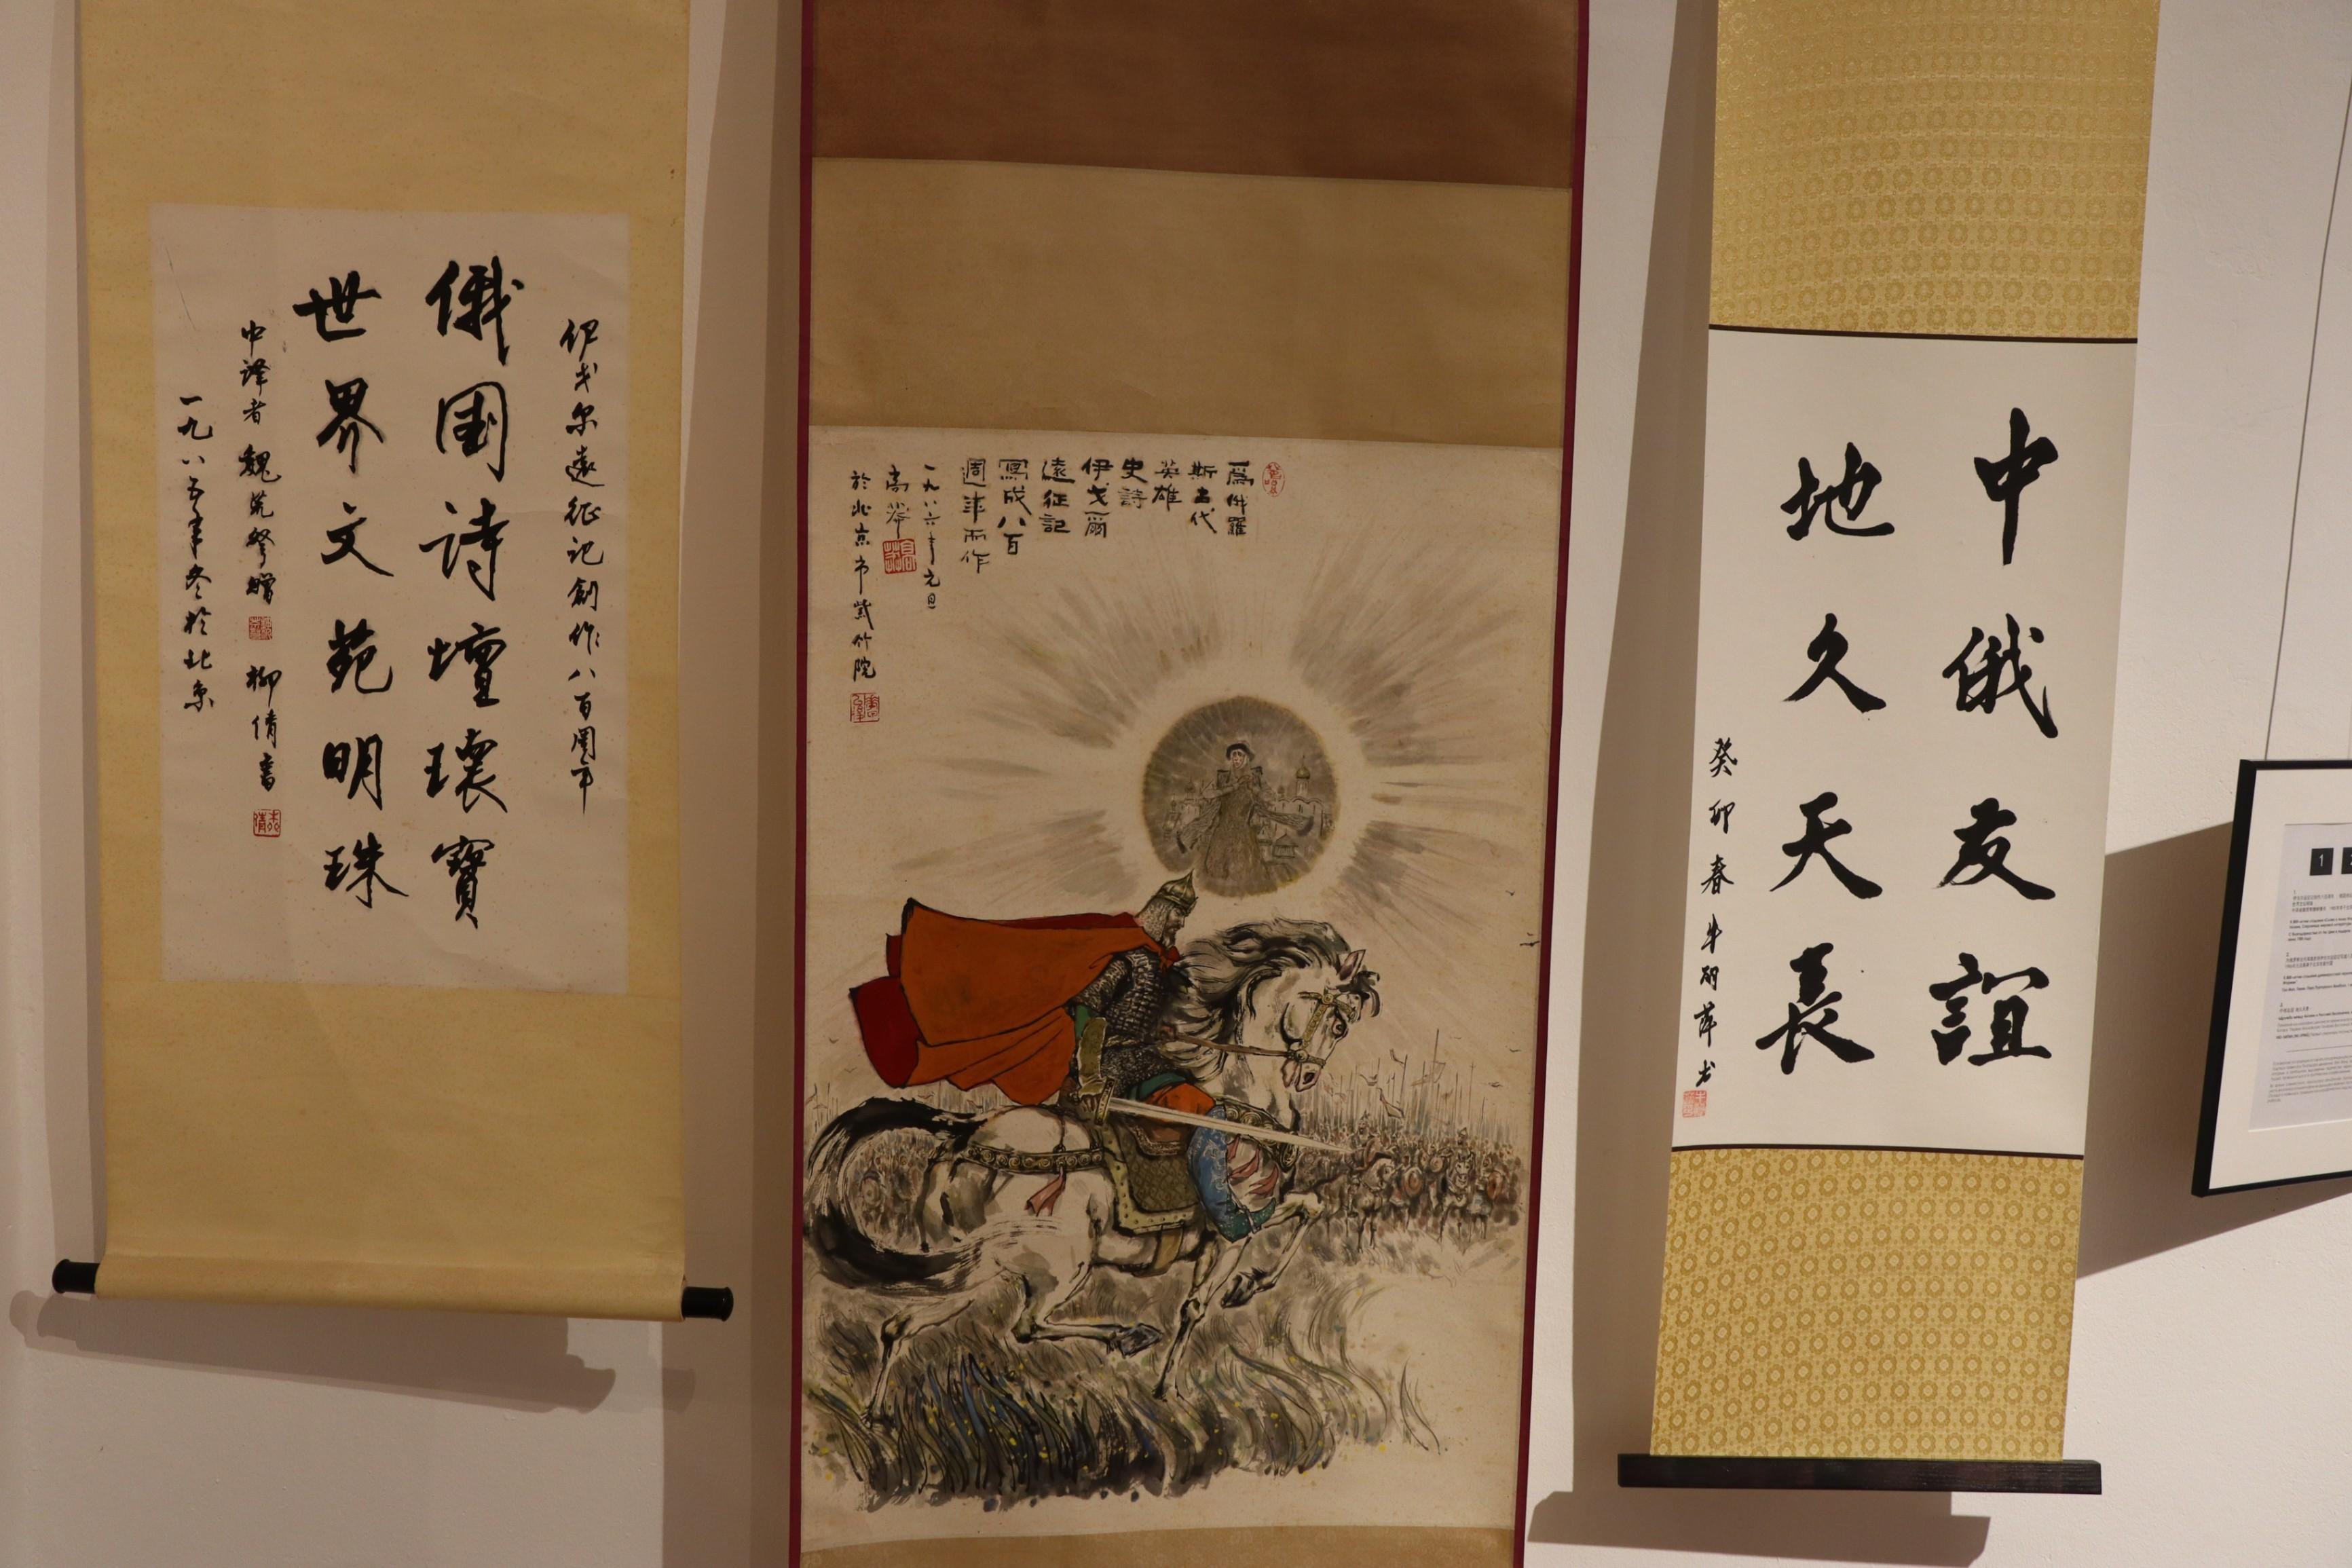 伊戈尔遠征记創作八百周年
俄国詩壇瓌寶
世界文苑明珠
中譯者 魏荒弩贈 柳倩書
一九八五年冬於北京
爲俄羅
斯古代
英雄
史詩
伊戈爾
遠征記
寫成八百
週年而作
一九八六年元旦
高莽
於北京市紫竹院
中俄友誼
地久天長
癸卯春牛萍书
1